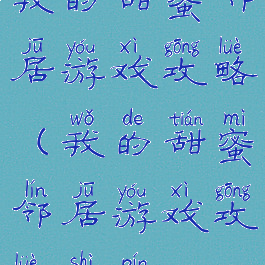 我的甜蜜邻
jū yóu xì gōng lüè
居游戏攻略
wǒ de tián mì
（我的甜蜜
lín jū yóu xì gōng
邻居游戏攻
lüè shì pín